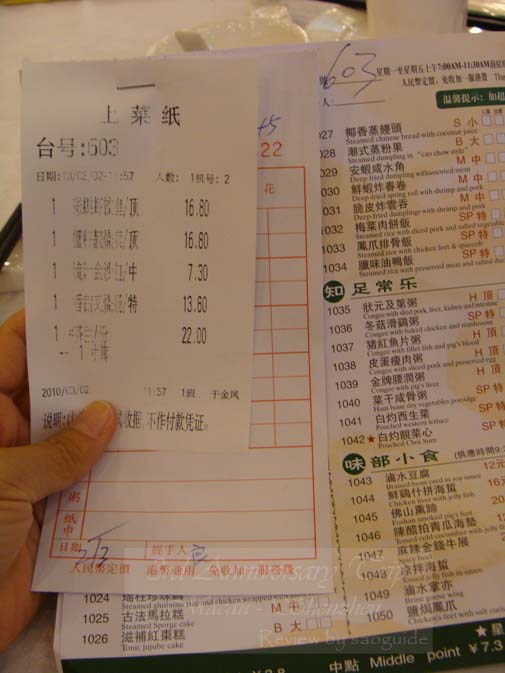 上菜纸
台号:603
日期:10/03/02-1 :57 人数: 1机号: 2
1 /顶 16.80
1 /顶 16.80
1 /中 7.30
1 /特 13.80
1 22.00
2010/03/02 11:57 1班 于金凤
说明: 收据,不作付款凭证。
22
花
粥
纸巾
日期 經手人
人民幣定價 港幣通用 免收加一服務費
603
星期一至星期五上午7:00AM-11:30AM
人民幣定價, 免收加一服務費 The
温馨提示: 如
027 椰香蒸饅頭 S 小
Steamed chinese bread with coconut juice
1028 潮式蒸粉果 B 大
Steamed dumpling in "cao chow style"
1029 安蝦咸水角 M 中
Deep-fried dumpling with assorted meat
1030 鮮蝦炸春卷 M 中
Deep-fried spring roll with shrimp and pork
1031 脆皮炸雲吞 M 中
Deep-fried dumplings with shrimp and pork
1032 梅菜肉餅飯 SP 特
Steamed rice with diced pork and salted vegetable
1033 鳳爪排骨飯 SP 特
Steamed rice with chicken feet & sparerib
1034 臘味油鴨飯 SP 特
Steamed rice with preserved meat and salted duck
知 足常乐
1035 狀元及第粥 H 頂
Congee with sliced pork, liver, kidney and intestine
1036 冬菇滑鷄粥 SP 特
Congee with baked chicken and mushroom
1037 猪紅魚片粥 H 頂
Congee with fillet fish and pig's blood
1038 皮蛋瘦肉粥 H 頂
Congee with sliced pork and preserved egg
1039 金牌腰潤粥 H 頂
Congee with pig's liver
1040 菜干咸骨粥 SP 特
Ham bone dry vegetables porridge
1041 白灼西生菜 SP 特
Poached western lettuce
1042 ★ 白灼靚菜心 SP 特
Poached Choi Sum
味 部小食 (供應時間9:
1043 滷水豆腐 12元
Braised bean curd in soy sauce
1044 鮮鷄什拼海蜇 16元
Chicken liver with jelly fish
1045 佛山熏蹄
Foshan smoked pig's feet
1046 陳醋拍青瓜海蜇
Tossed cold cucumber with jelly fish
1047 麻辣金錢牛展
1048 涼拌海蜇
Tossed jelly fish in sauce
1049 滷水掌亦
Braise goose wing
1050 鹽焗鳳爪
Chicken's feet with salt
1024 瑤柱珍珠鷄 M 中
Steamed glutinous rice and chicken wrapped
1025 古法馬拉糕 M 中
Steamed Sponge cake
1026 滋補紅棗糕 B 大
Tonic jujube cake
★星
中點 Middle point ¥7.3
3rd Anniversary Trip
Macau - Shenzhen
Review by saoguide